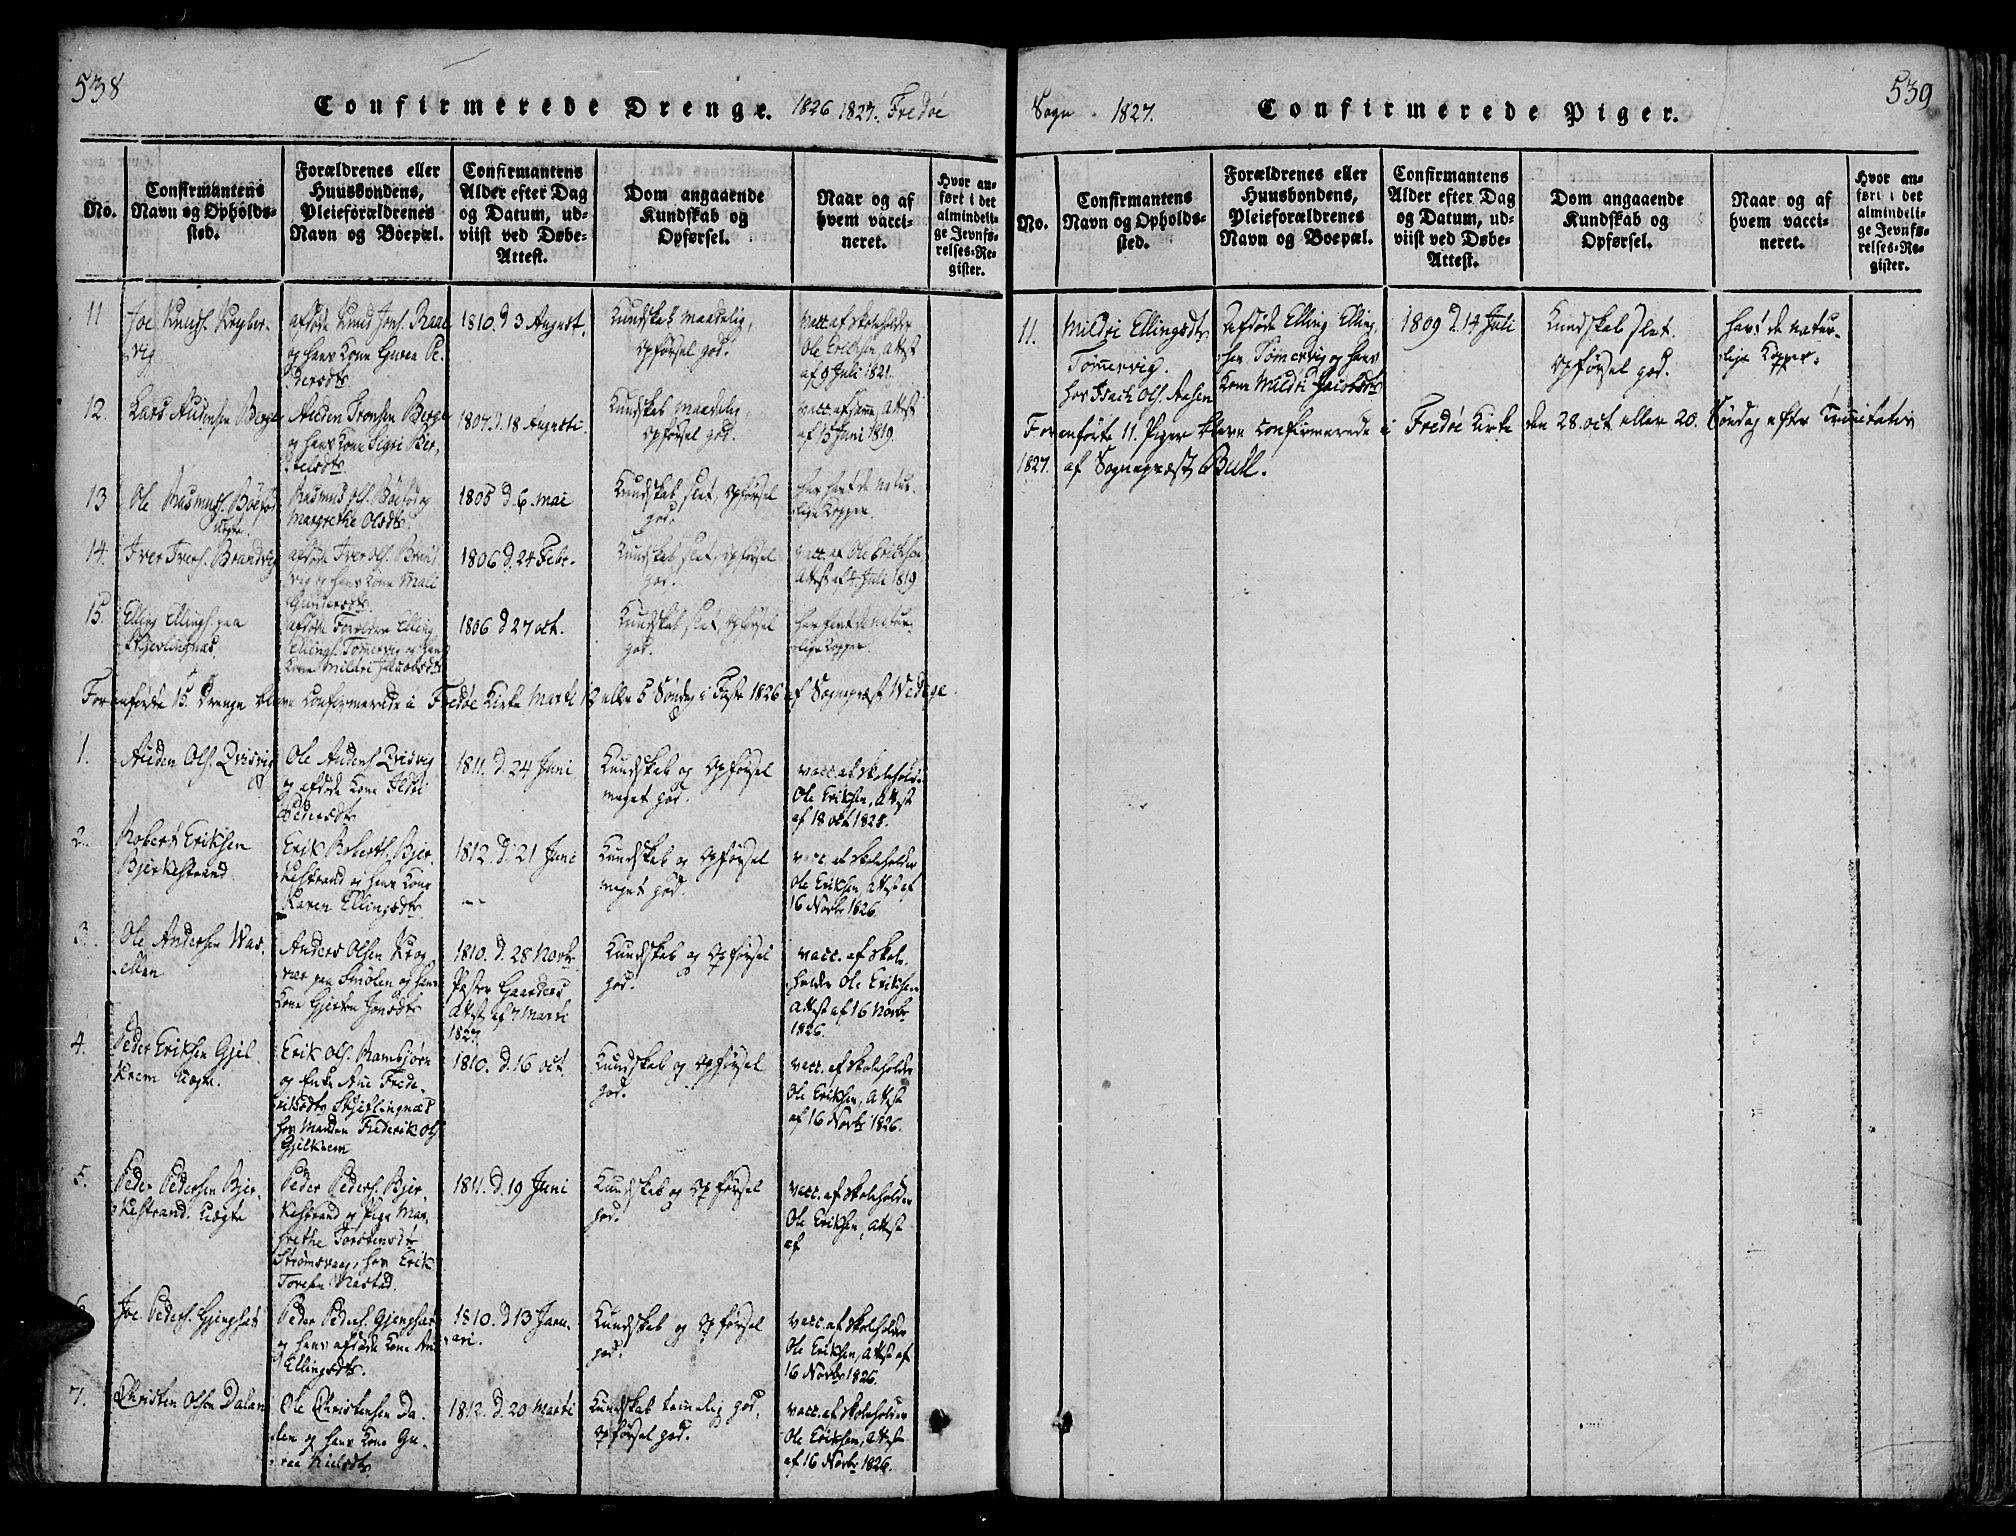 538
Confirmerede Drenge. 1826 1827. Fredøe
No.
Confirmantens
Navn og Opholds-
sted.
Forældrenes eller
Huusbondens,
Pleieforældrenes
Navn og Boepæl.
Confirmantens
Alder efter Dag
og Datum, ud-
viist ved Døbe-
Attest.
Dom angaaende
Kundskab og
Opførsel.
Naar og af
hvem vacci-
neret.
Hvor an-
ført i det
almindeli-
ge Jevnfø-
relses-Re-
gister.
11
Joe Knuds.
vig
afdøde Knud Jons.
og hans Kone Guraa Pe-
dersdtr.
1810. d 3 August.
Kundskab maadelig,
Opførsel god.
vacc. af skoleholder
Ole Eriksen, Attest
af 9 Juli 1821.
12.
Lars Audensen Berge
Auden Tronsen Berge
og hans Kone Sigri Ber-
telsdtr.
1807 d. 18 Augusti.
Kundskab maadelig,
Opførsel god.
vacc. af samme, Attest
af 15 Juni 1819.
13
Ole Rasmus.
Uægte.
Rasmus Ols.
Margrethe Olsdtr.
1805 d. 6. mai
Kundskab slet, Opførsel
god.
har havt de natur-
lige Kopper.
14.
Iver Ivers. Brandvig
afdøde Iver Ols. Brand-
vig og hans Kone Mali
Gundersdtr.
1806 d. 24 Febr.
Kundskab slet, Opførsel
god.
vacc. af Ole Eriksen
Attest af 4 Juli 1819
15.
Elling Ellings. paa
Skjevlingnæs.
afdøde Forældre Elling
Ellings. Tømervig og hans
Kone Mildri Jacobsdtr
1806 d 27 oct.
Kundskab slet, Opførsel
god.
har havt de natur-
lige Kopper.
Foranførte 15. Drenge bleve Confirmerede i Fredøe Kirke Marti 12 eller 5 Søndag i Faste 1826 af Sognepræst Wedege.
1.
Auden Ols. Qvisvig
Ole Audens. Qvisvig
og afdøde Kone Ildri
Pedersdtr
1811. d. 24 Juni
Kundskab og Opførsel
meget god.
vacc. af skolehold.
Ole Eriksen, Attest
af 18 oct 1825.
2.
Robert Eriksen
Bjerkestrand
Erik Roberts. Bjer-
kestrand og hans Kone
Karen Ellingsdtr.
1812. d. 21 Juni
Kundskab og Opførsel
meget god.
vacc. af skoleholder
Ole Eriksen, Attest af
16 Novbr 1826.
3.
Ole Andersen
Anders Olsen Krog-
nes paa Smølen og hans
Kone Gjertru Jonsdtr
1810. d. 28 Novbr
Pastor Gaarders
Attest af 7 Marti
1827.
Kundskab og Opførsel
god.
vacc. af skole-
holder Ole Eriksen
Attest af 16 Novbr
1826.
4.
Peder Eriksen Gjel-
krem Uægte.
Erik Ols. Ramsjørn
og Enke Ane Frede-
riksdtr Skjevlingnæs
hos Manden Frederik Ols.
Gjelkrem
1810. d. 16 oct.
Kundskab og Opførsel
god.
vacc. af skoleholder
Ole Eriksen, Attest
af 16 Novbr 1826.
5.
Peder Pedersen Bjer-
kestrand. Uægte
Peder Peders. Bjer-
kestrand og Pige Mar-
grethe Torstensdtr
Strømsvaag, hos Erik
Toresen Nastad.
1811. d. 19 Juni
Kundskab og Opførsel
god.
vacc. af skoleholder
Ole Eriksen, Attest
af
6.
Joe Peders. Gjengsæt
Peder Peders. Gjengsæt
og hans afdøde Kone An
Ellingsdtr.
1810. d 13 Janu-
ari.
Kundskab og Opførsel
god.
vacc. af skoleholder
Ole Eriksen, Attest af
16 Novbr 1826.
7.
Christen Olsen Dalen
Ole Christensen Da-
len og hans Kone Gu-
raa Nielsdtr.
1812. d. 20 Marti
Kundskab temmelig god,
Opførsel god.
vacc. af skoleholder
Ole Eriksen, Attest
af 16 Novbr 1826.
Sogn 1827. Confirmerede Piger.
539
No.
Confirmantens
Navn og Opholds-
sted.
Forældrenes eller
Huusbondens,
Pleieforældrenes
Navn og Boepæl.
Confirmantens
Alder efter Dag
og Datum, ud-
viist ved Døbe-
Attest.
Dom angaaende
Kundskab og
Opførsel.
Naar og af
hvem vacci-
neret.
Hvor an-
ført i det
almindeli-
ge Jevnfø-
relses-Re-
gister.
11.
Mildri Ellingsdtr
Tømervig.
hos Isach Ols. Aasen
Afdøde Elling Elling-
sen Tømervig og hans
Kone Mildri Jacobsdtr
1809 d. 14 Juli
Kundskab slet.
Opførsel god.
havt de natur-
lige Kopper.
Foranførte 11. Piger bleve Confirmerede i Fredøe Kirke den 28. oct. eller 20. Søndag efter Trinitatis
1827. af Sognepræst Bull.